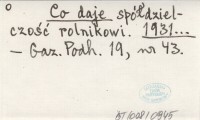 o
Co daje spółdziel-
czość rolnikowi. 1931...
– Gaz. Podh. 19, nr 43.